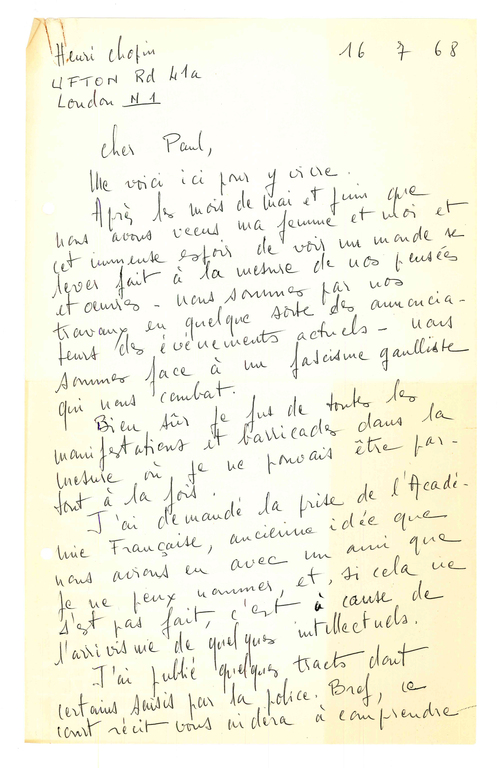 Henri Chopin
16 7 68
UFTON Rd 41a
London N1
Cher Paul,
Me voici ici pour y vivre.
Après les mois de mai et juin que
nous avons vécus ma femme et moi et
cet immense espoir de voir un monde se
lever fait à la mesure de nos pensées
et oeuvres - nous sommes par nos
travaux en quelque sorte des annoncia-
teurs des événements actuels - nous
sommes face à un fascisme gaulliste
qui nous combat.
Bien sûr je fus de toutes les
manifestations et barricades dans la
mesure où je ne pouvais être par-
tout à la fois.
J'ai demandé la prise de l'Acadé-
mie Française, ancienne idée que
nous avions eu avec un ami que
je ne peux nommer, et, si cela ne
s'est pas fait, c'est à cause de
l'arrivisme de quelques intellectuels.
J'ai publié quelques tracts dont
certains saisis par la police. Bref, ce
court récit vous aidera à comprendre